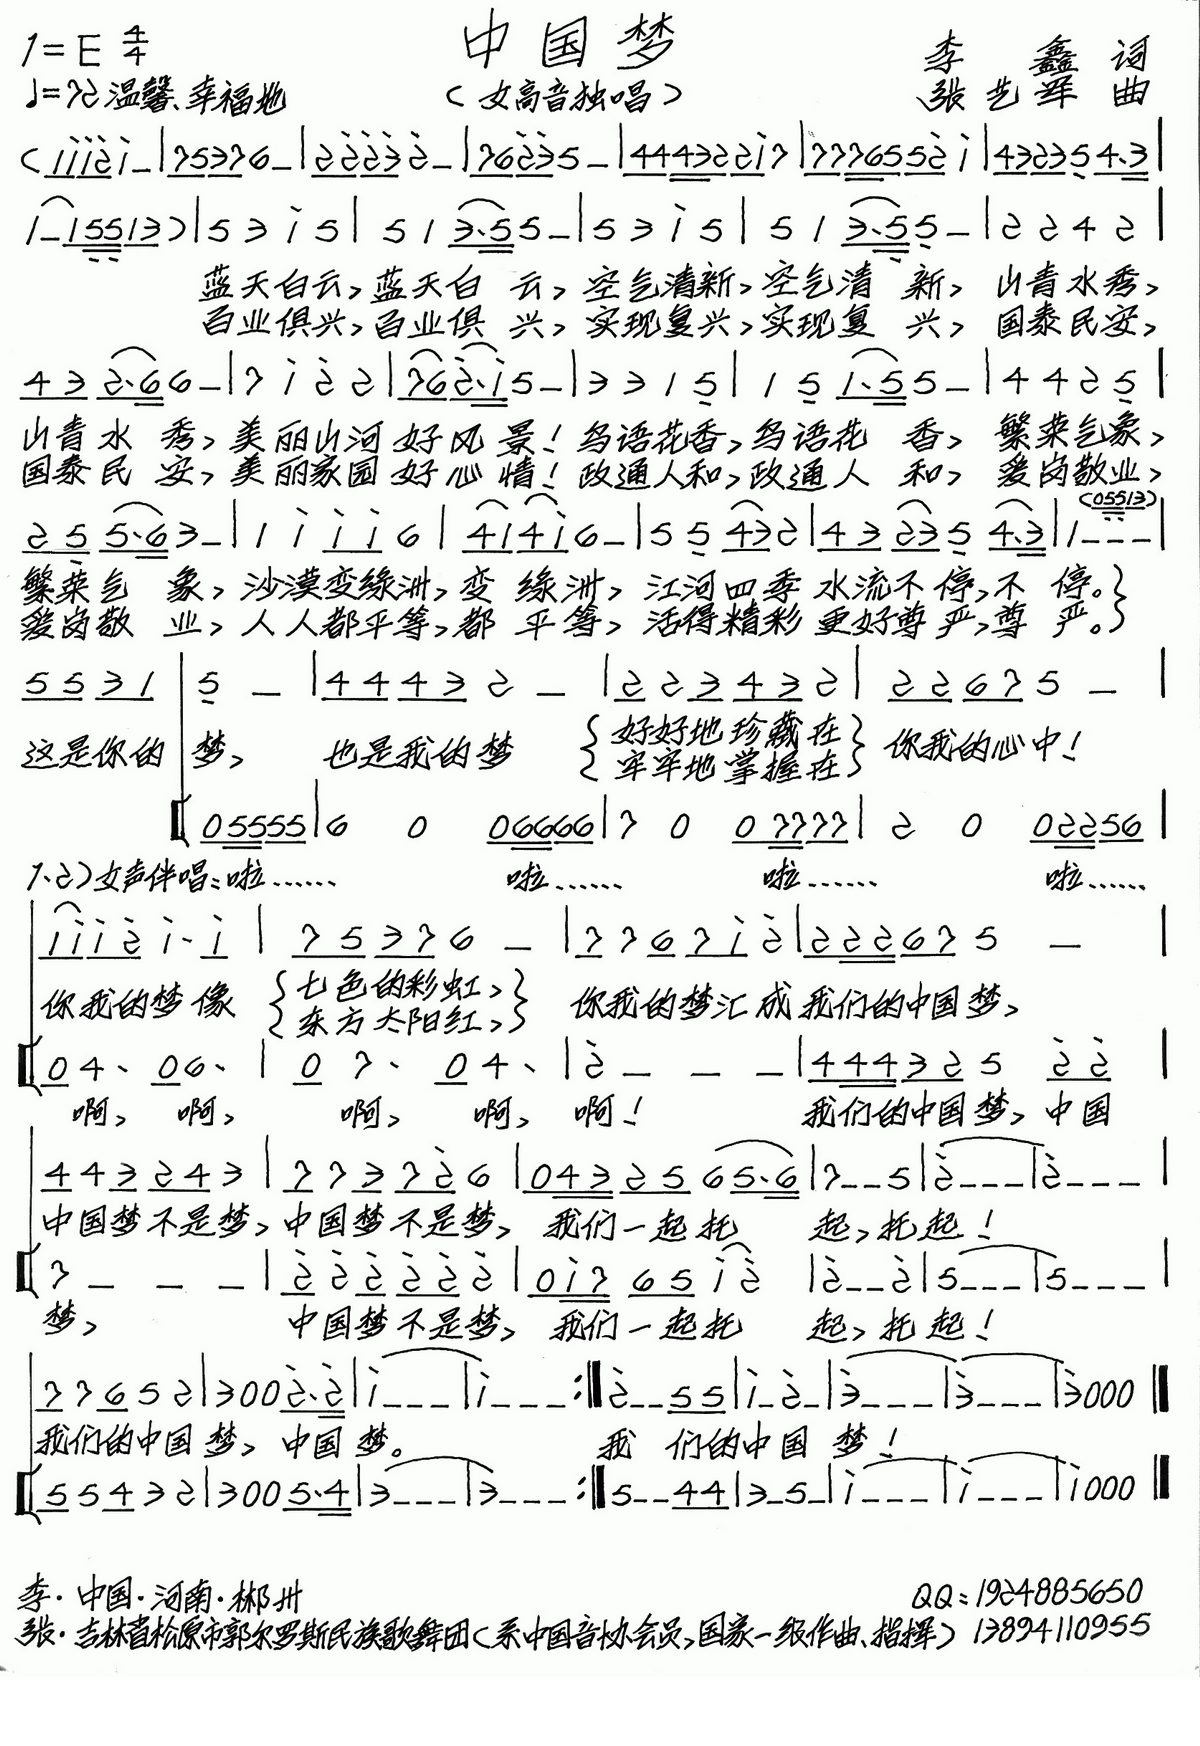 1=E 4/4
中国梦
李鑫 词
♩=72 温馨、幸福地
(女高音独唱)
张艺军 曲
(1̇1̇1̇2̇1̇-|75376-|2̇2̇2̇3̇2̇-|762̇3̇5-|4443221̇7|77765521̇|432354.3|
1-15513)|531̇5|513.555-|531̇5|513.55-|2242|
蓝天白云,蓝天白 云,空气清新,空气清 新, 山青水秀,
百业俱兴,百业俱 兴,实现复兴,实现复 兴, 国泰民安,
432.66-|71̇2̇2|762̇.1̇5-|3315|151.55-|4425|
山青水 秀,美丽山河好风 景!鸟语花香,鸟语花 香, 繁荣气象,
国泰民 安,美丽家园好心 情!政通人和,政通人 和, 爱岗敬业,
(05513)
255.63-|11̇1̇1̇6|4141̇6-|55432|432354.3|1---|
繁荣气 象,沙漠变绿洲,变 绿洲, 江河四季 水流不停,不 停。}
爱岗敬 业,人人都平等,都 平等, 活得精彩 更好尊严,尊 严。}
5531|5-|44432-|223432|22675-|
这是你的 梦, 也是我的梦 {好好地珍藏在} 你我的心中!
{牢牢地掌握在}
05555|60 06666|70 07777|20 02256|
1、2)女声伴唱:啦…… 啦…… 啦…… 啦……
1̇1̇1̇2̇1̇·1̇|75376-|77671̇2̇|222675-|
你我的梦像 {七色的彩虹,} 你我的梦汇成我们的中国梦,
{东方太阳红,}
04· 06·|07· 04·|2̇---|4443252̇2̇|
啊, 啊, 啊, 啊, 啊! 我们的中国梦,中国
443243|77372̇6|0432565.6|7--5|2̇---|2̇---|
中国梦不是梦,中国梦不是梦, 我们一起托 起,托起!
7---|2̇2̇2̇2̇2̇2̇|01̇7651̇2̇|2̇--2̇|5---|5---|
梦, 中国梦不是梦, 我们一起托 起,托起!
77652|3002̇.2̇|1̇---|1̇---:‖2̇--55|1̇-2̇-|3̇---|3̇---|3̇000‖
我们的中国梦,中国 梦。 我 们的中国 梦!
55432|3005.4|3---|3---:‖5--44|3-5-|1̇---|1̇---|1̇000‖
李·中国·河南·郴州
QQ:1924885650
张·吉林省松原市郭尔罗斯民族歌舞团(系中国音协会员,国家一级作曲、指挥) 13894110955